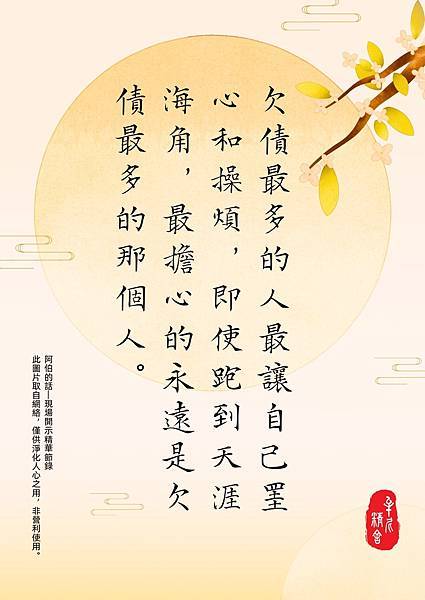 欠債最多的人最讓自己罣
心和操煩，即使跑到天涯
海角，最擔心的永遠是欠
債最多的那個人。
阿伯的話—現場開示精華節錄
此圖片取自網絡，僅供淨化人心之用，非營利使用。
精舍